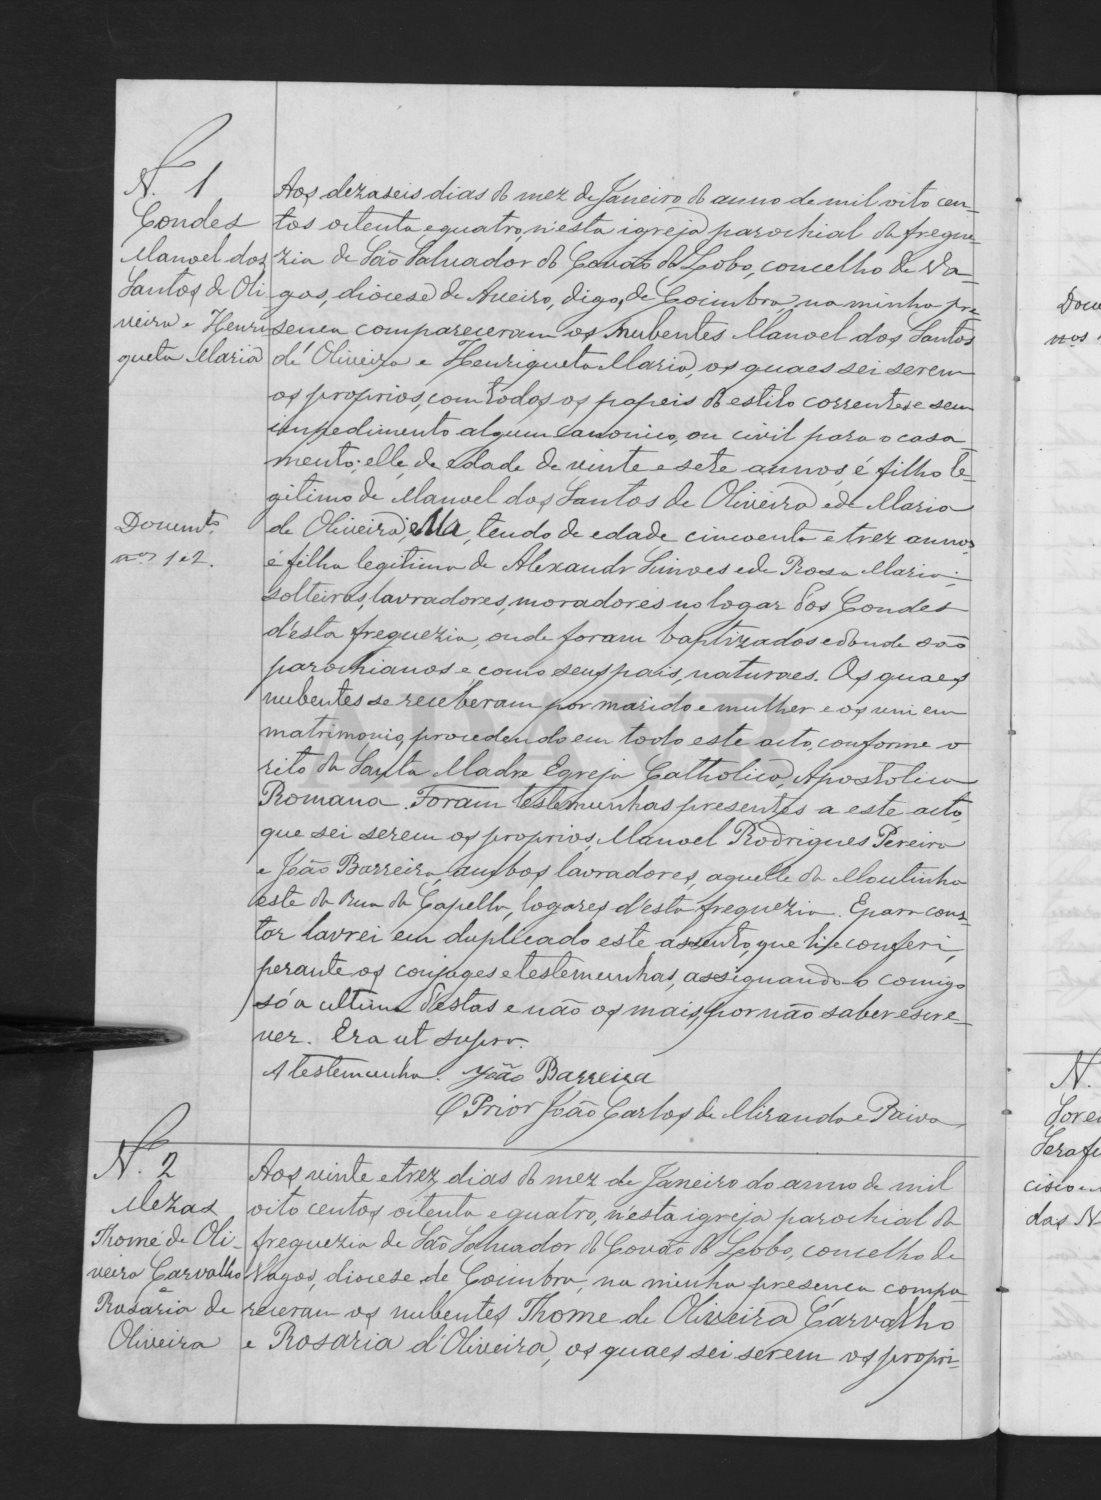 N. 1
Condes
Manoel dos
Santos de Oli
veira e Henri
queta Maria
Aos dezaseis dias do mez de Janeiro do anno de mil oito cen-
tos oitenta e quatro, n'esta igreja parochial da fregue-
zia de São Salvador do Covão do Lobo, concelho de Va-
gos, diocese de Aveiro, digo, de Coimbra, na minha pre
sença compareceram os nubentes Manoel dos Santos
d'Oliveira e Henriqueta Maria, os quaes sei serem
os proprios, com todos os papeis do estilo correntes e sem
impedimento algum canonico, ou civil para o casa
mento; elle, de edade de vinte e sete annos, é filho le-
gitimo de Manoel dos Santos de Oliveira e de Maria
de Oliveira; ella, tendo de edade cincoenta e trez annos,
é filha legitima de Alexandre Simoes e de Rosa Maria;
solteiros, lavradores, moradores no logar dos Condes
d'esta freguezia, onde foram baptizados e donde são
parochianos e como seus pais, naturaes. Os quaes
nubentes se receberam por marido e mulher e os uni em
matrimonio, procedendo em todo este acto, conforme o
rito da Santa Madre Egreja Catholica, Apostolica
Romana. Foram testemunhas presentes a este acto,
que sei serem os proprios, Manoel Rodrigues Pereira
e João Barreira, ambos lavradores, aquelle da Moutinha
este da Rua da Capella, logares d'esta freguezia. E para cons-
tar lavrei em duplicado este assento, que li, e conferi,
perante os conjuges e testemunhas, assignando-o comigo
só a ultima d'estas e não os mais, por não saber escre-
ver. Era ut supra.
A testemunha. João Barreira
O Prior João Carlos de Miranda e Paiva
Documtos
nos 1 e 2.
N. 2
Mezas
Thomé de Oli-
veira Carvalho
e
Rosaria de
Oliveira
Aos vinte e trez dias do mez de Janeiro do anno de mil
oito centos oitenta e quatro, n'esta igreja parochial da
freguezia de São Salvador do Covão do Lobo, concelho de
Vagos, diocese de Coimbra, na minha presença compa-
receram os nubentes Thome de Oliveira Carvalho
e Rosaria d'Oliveira, os quaes sei serem os propri-
Docu
nos
N.
das N